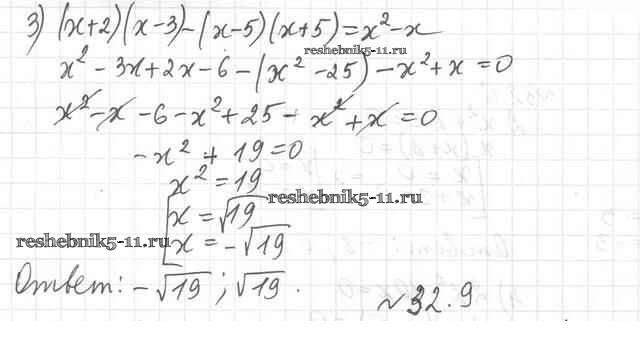 3) (x+2)(x-3)-(x-5)(x+5)=x²-x
reshebnik5-11.ru
x² - 3x+2x-6-(x²-25)-x²+x=0
x²-x-6-x²+25-x²+x=0
-x²+19=0
x²=19
reshebnik5-11.ru
[x=√19
reshebnik5-11.ru
x=-√19
Ответ: -√19; √19.
~32.9